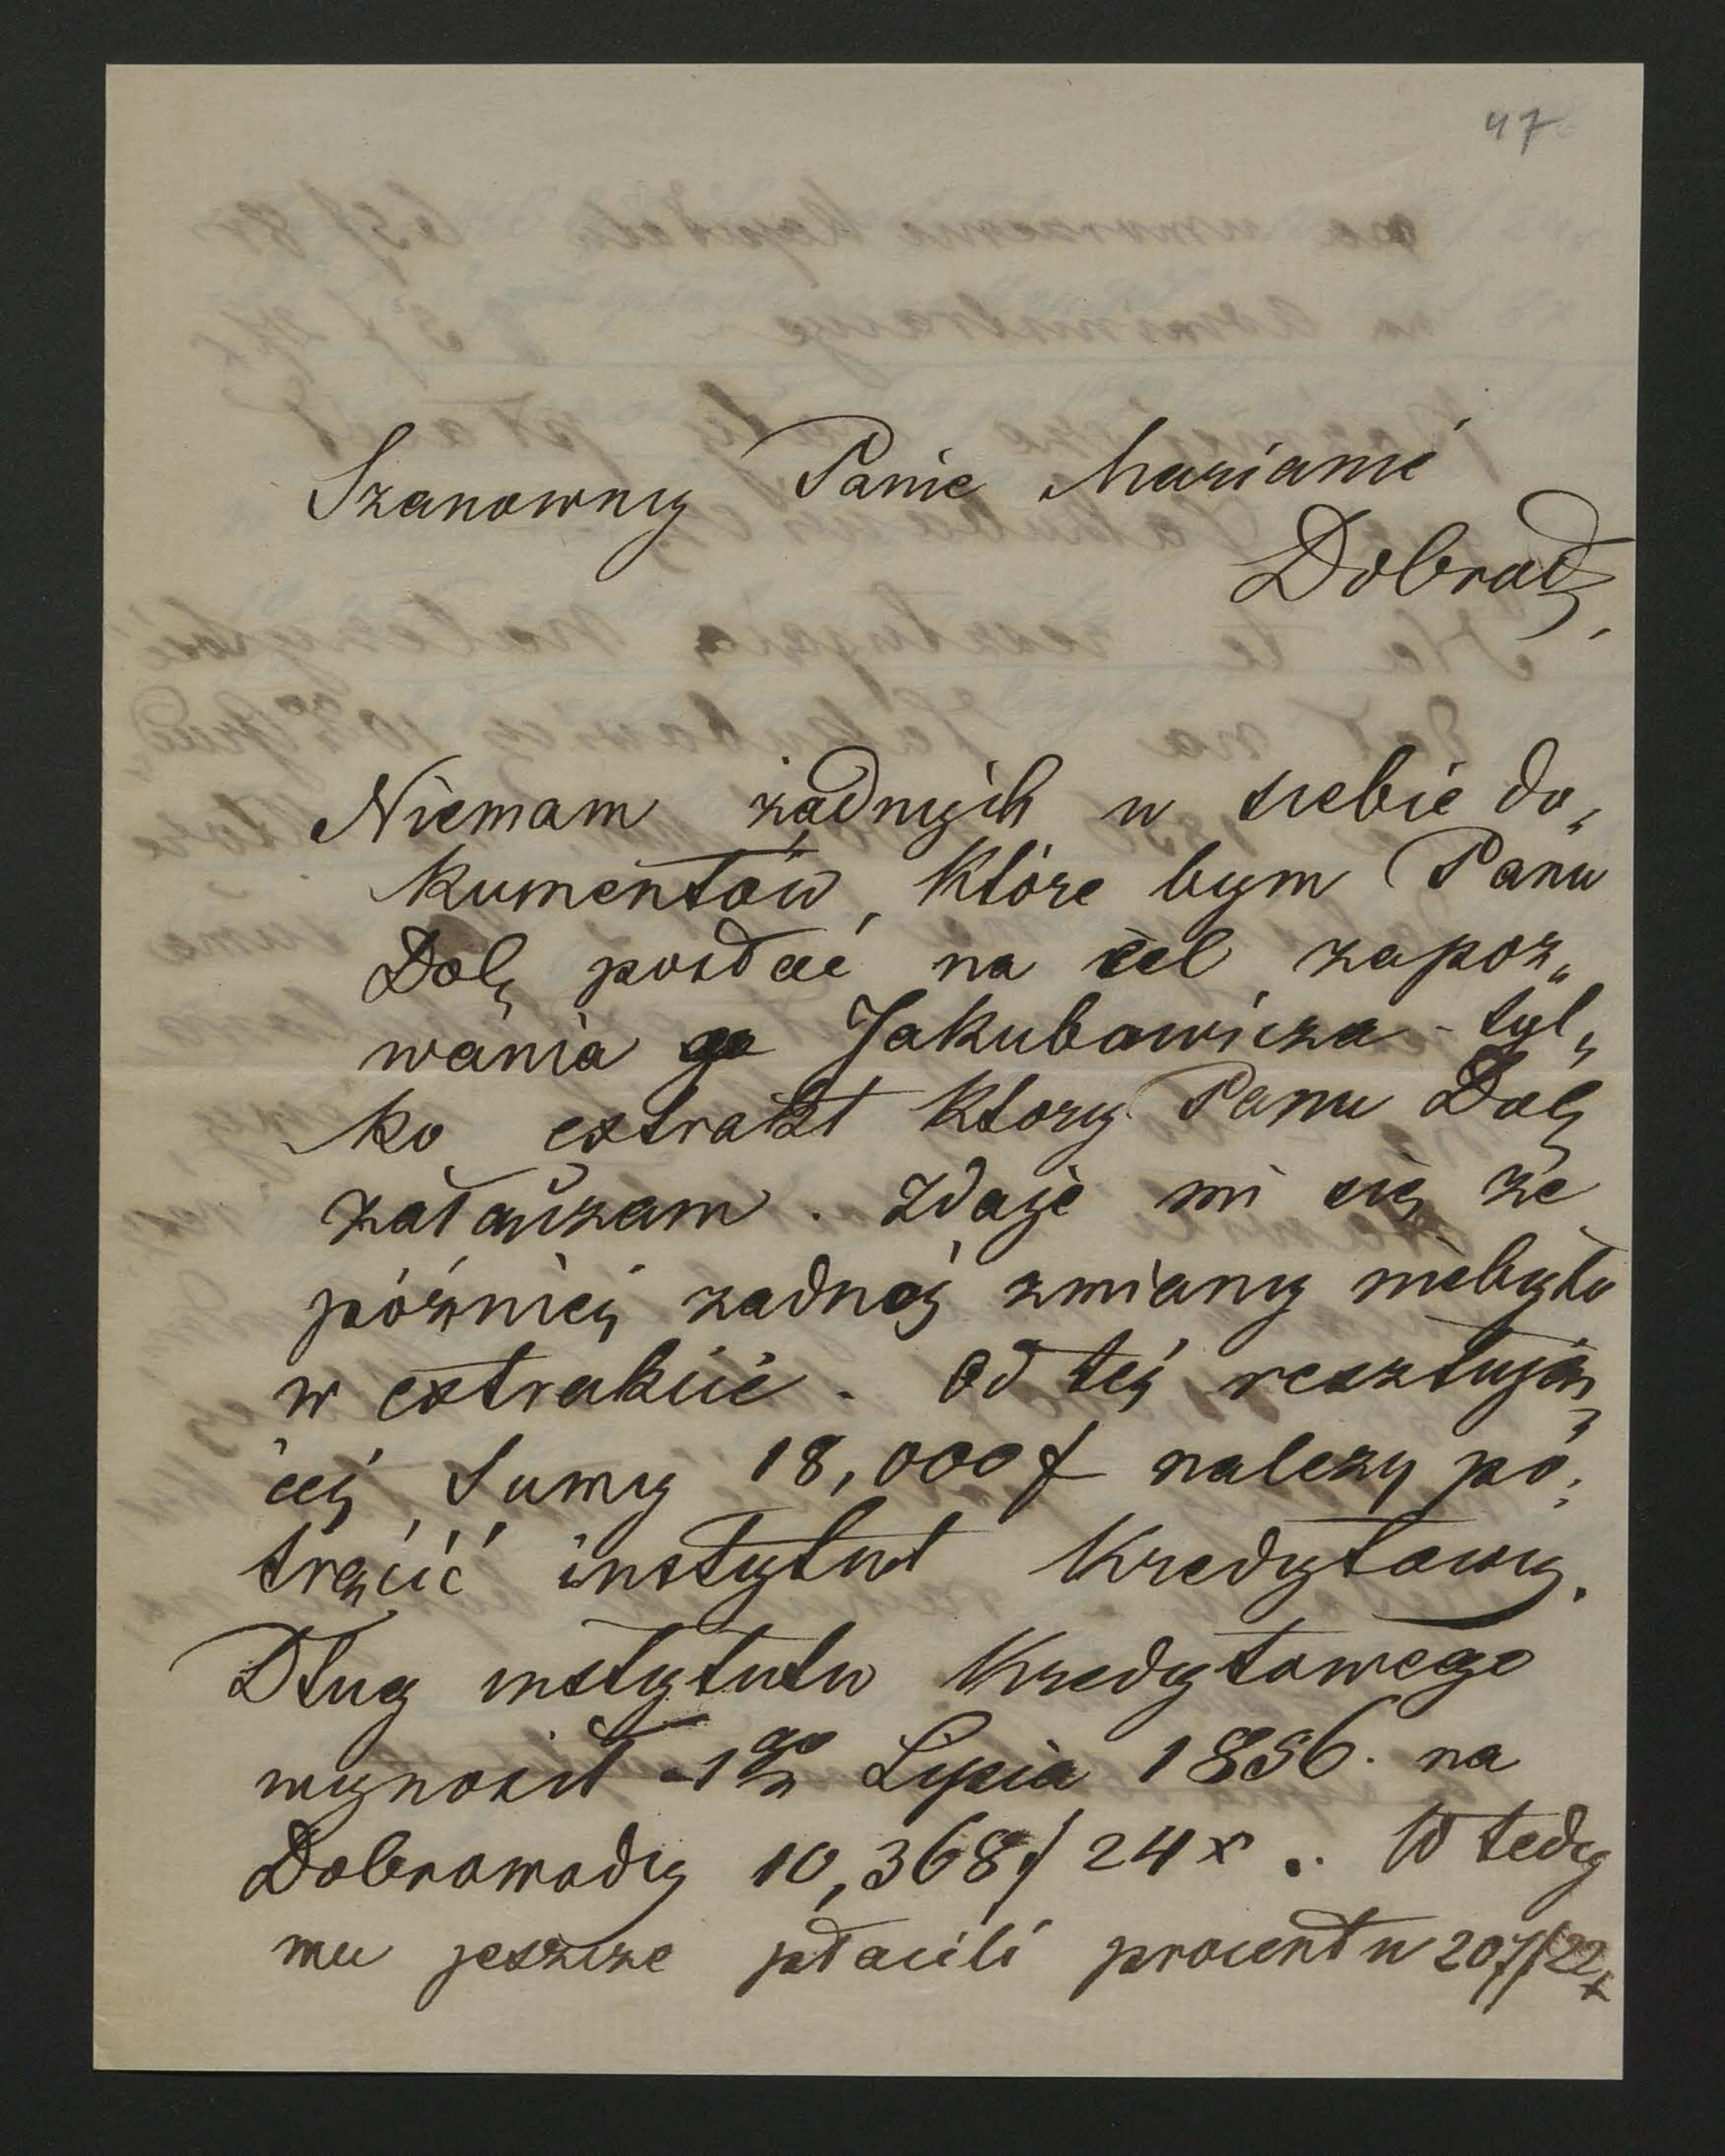 47
Szanowny Panie Marianie
Dobrodz.
Niemam żadnych u siebie do„
kumentów, które bym Panu
Dob posłać na cel zapoz„
wania Jakubowicza - tyl„
ko extrakt ktory Panu Dob
załączam. Zdaje mi się że
później zadnej zmiany niebyło
w extrakcie. Od tej resztują„
cej Sumy 18,000 f należy po„
trącić instytut Kredytowy.
Dług instytutu Kredytowego
wynosił - 1go Lipca 1856. na
Dobrowody 10,368f 24x .. W tedy
mu jeszcze płacili procentu 207f 22x